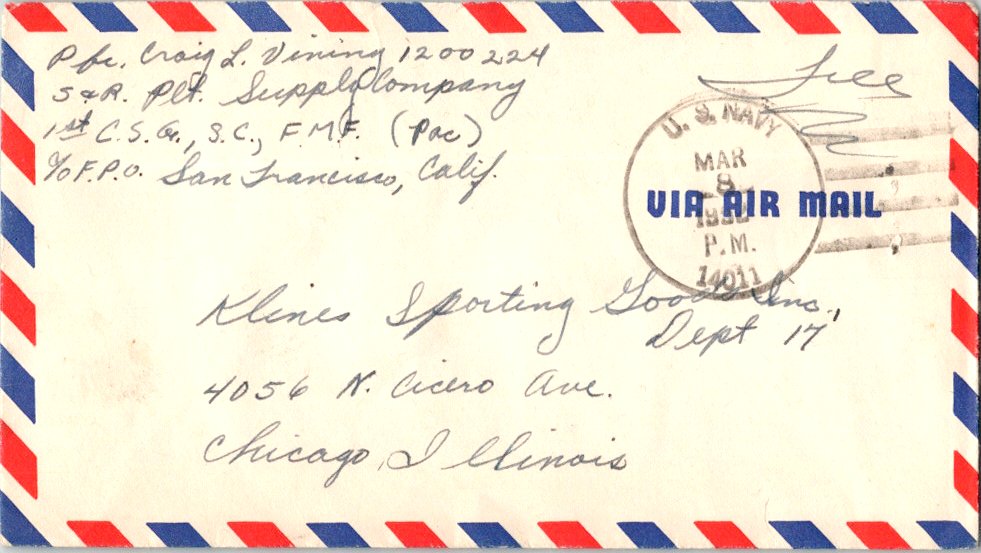 Pfc. Craig L. Vining 1200224
S & R. Plt. Supply Company
1st C.S.G., S.C., F.M.F. (Pac)
c/o F.P.O. San Francisco, Calif.
Free
U. S. NAVY
MAR
8
P.M.
14011
VIA AIR MAIL
Klines Sporting Goods Inc,
Dept 17
4056 N. Cicero Ave.
Chicago, Illinois